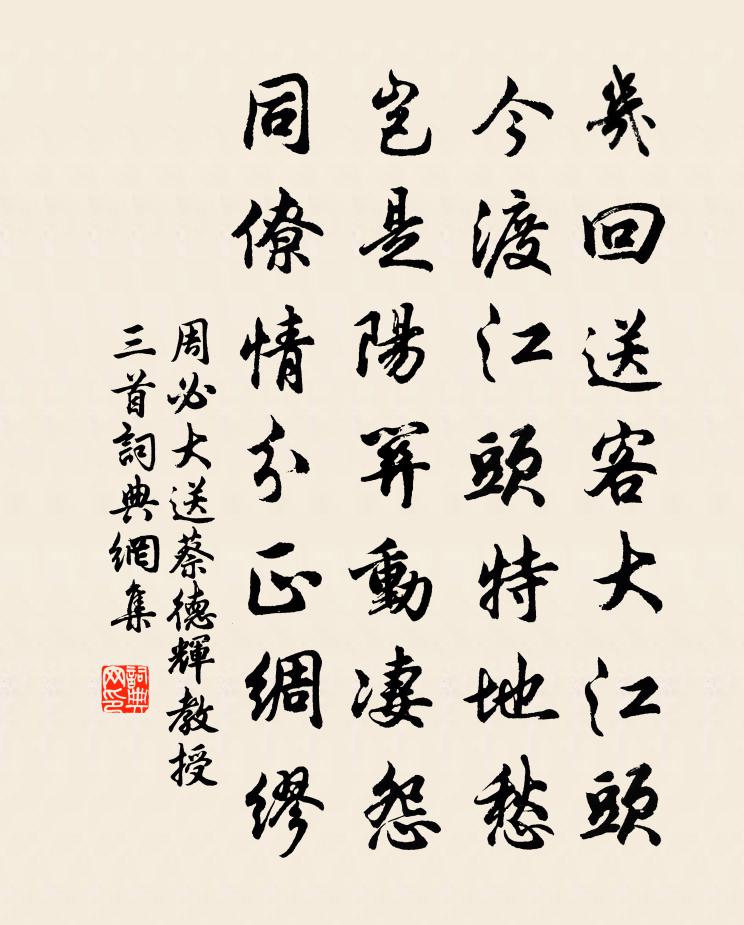 幾回送客大江頭
今渡江頭特地愁
豈是陽關動淒怨
同僚情分正綢繆
周必大送蔡德輝教授
三首詞典網集
詞典网印